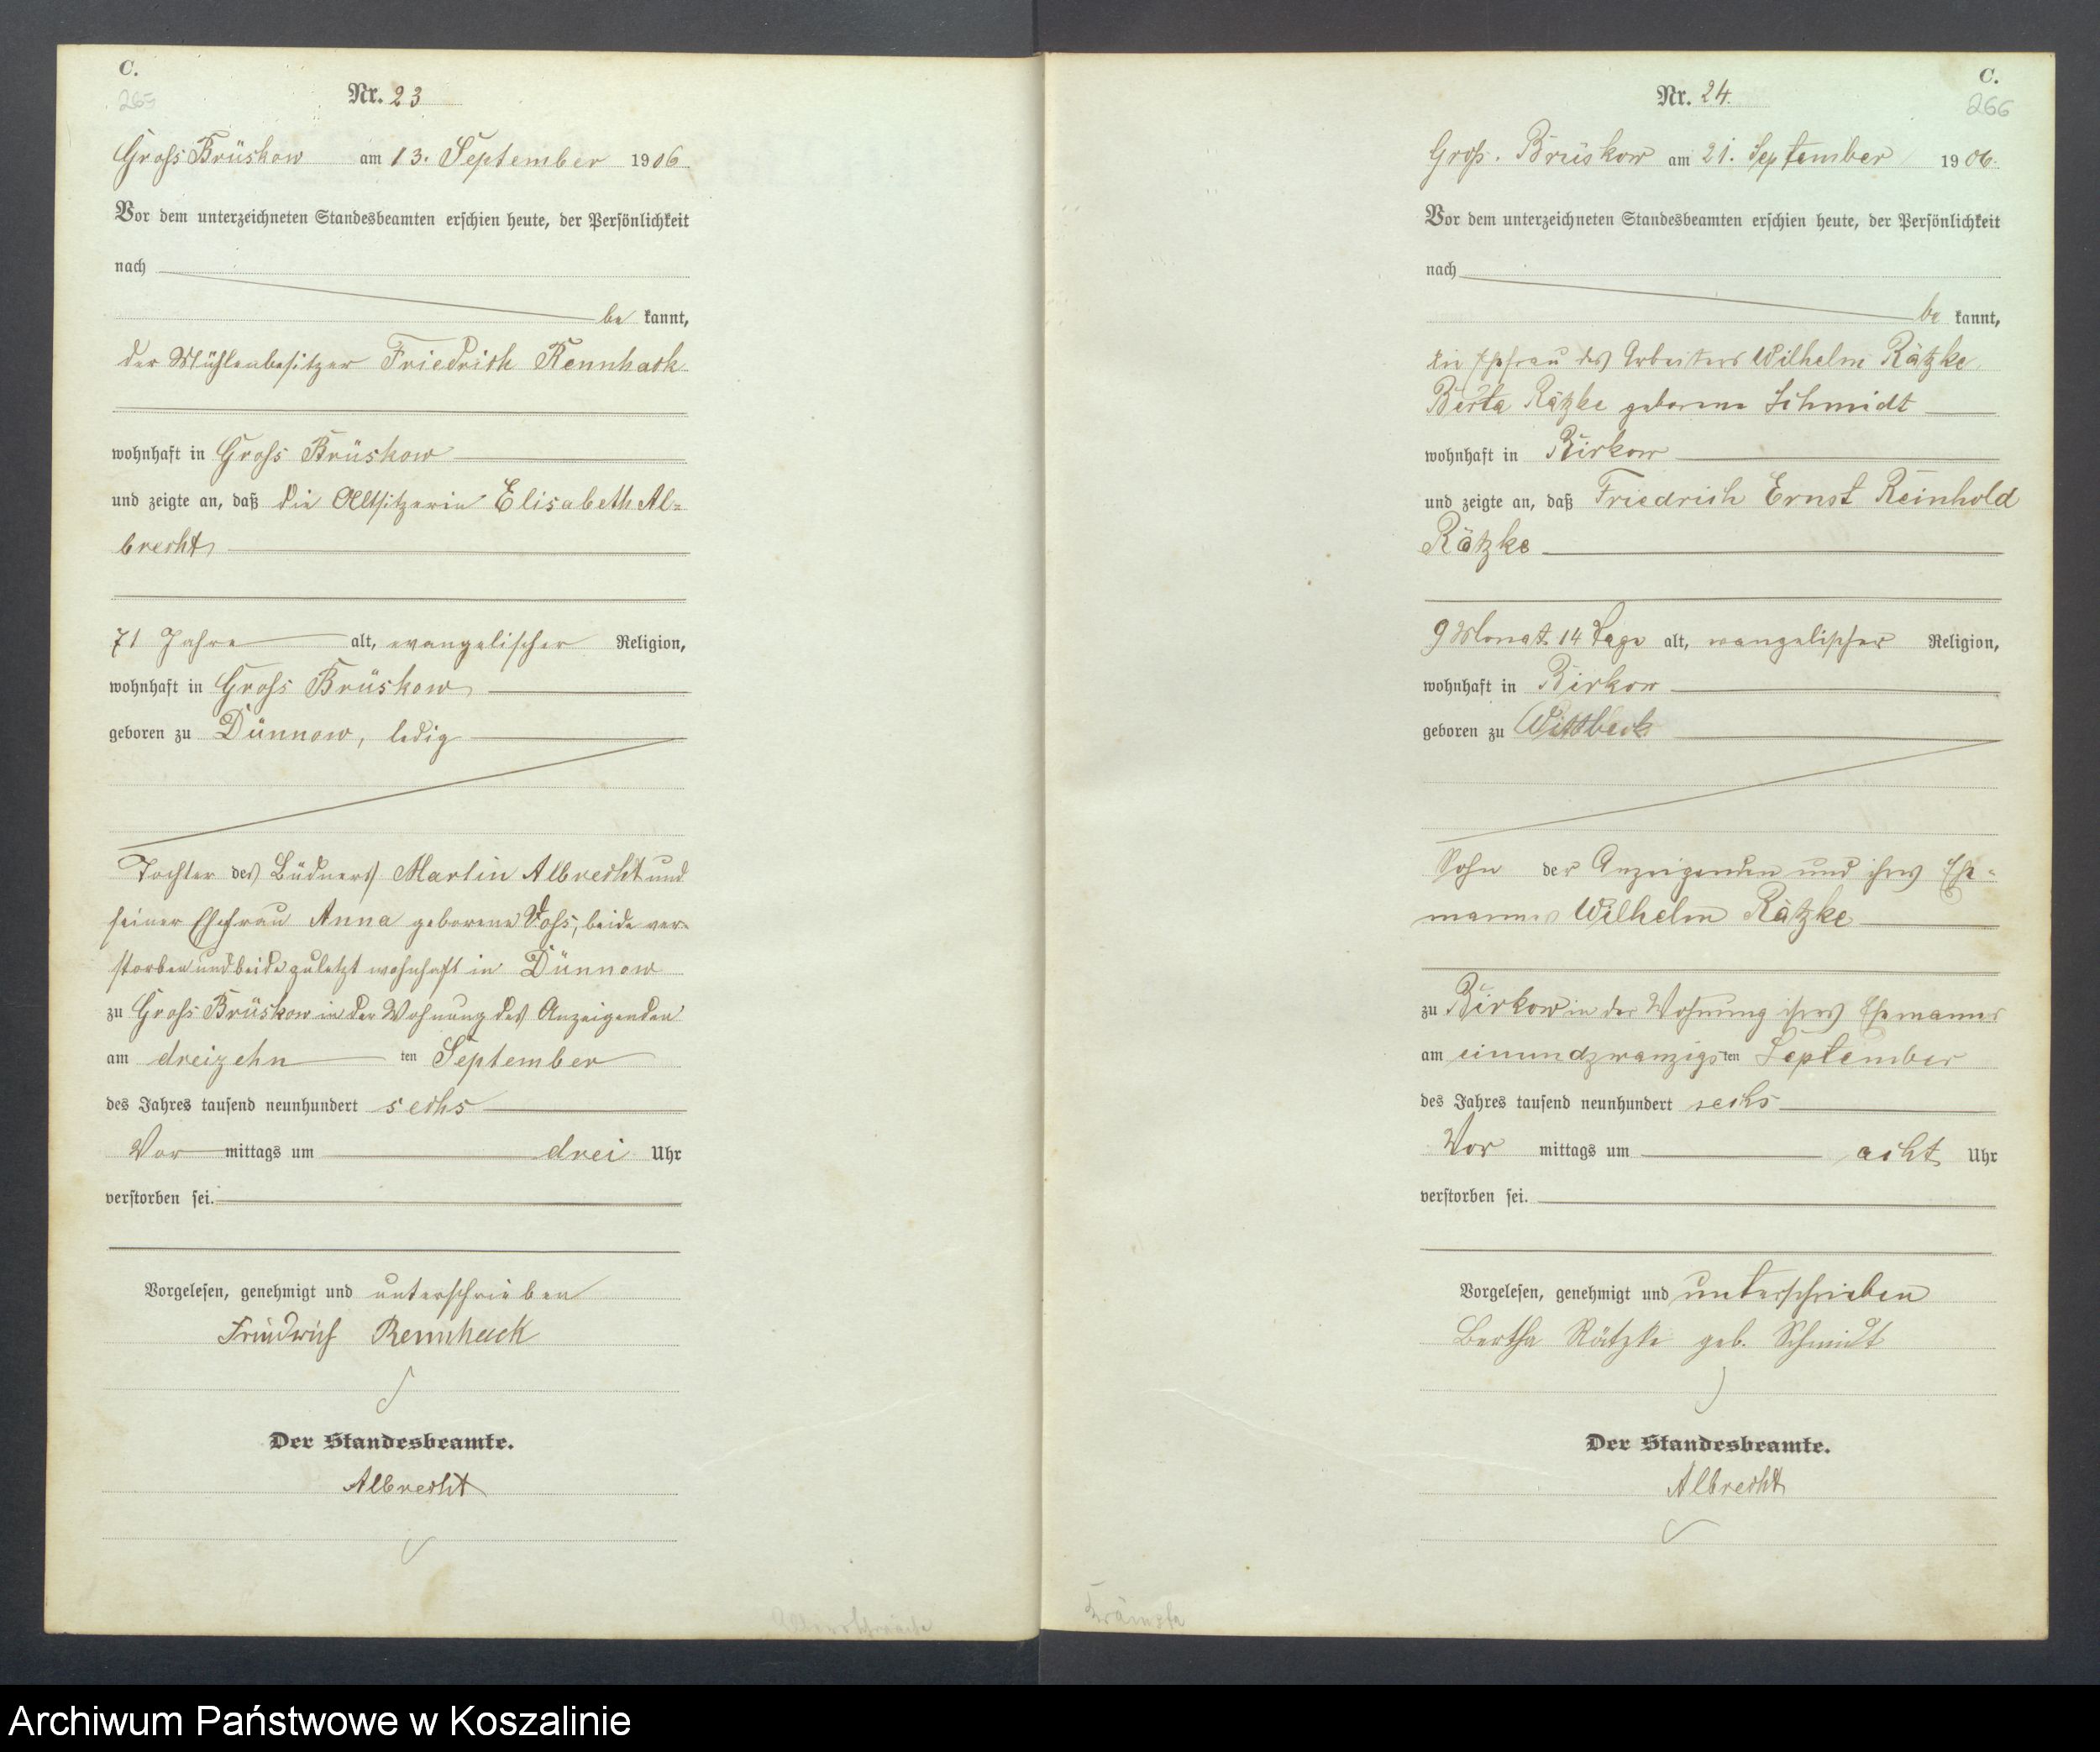 C.
265
Nr. 23
Gross Brüskow am 13. September 1906
Vor dem unterzeichneten Standesbeamten erschien heute, der Persönlichkeit
nach
be kannt,
der Mühlenbesitzer Friedrich Rennhack
wohnhaft in Gross Brüskow
und zeigte an, daß die Altsitzerin Elisabeth Al-
brecht
71 Jahre alt, evangelischer Religion,
wohnhaft in Gross Brüskow
geboren zu Dünnow, ledig
Tochter des Büdners Martin Albrecht und
seiner Ehefrau Anna geborene Voss, beide ver-
storben und beide zuletzt wohnhaft in Dünnow
zu Gross Brüskow in der Wohnung des Anzeigenden
am dreizehn ten September
des Jahres tausend neunhundert sechs
Vor mittags um drei Uhr
verstorben sei.
Vorgelesen, genehmigt und unterschrieben
Friedrich Rennhack
Der Standesbeamte.
Albrecht
Altersschwäche
C.
266
Nr. 24.
Gross. Brüskow am 21. September 1906.
Vor dem unterzeichneten Standesbeamten erschien heute, der Persönlichkeit
nach
be kannt,
die Ehefrau des Arbeiters Wilhelm Rätzke,
Berta Rätzke geborene Schmidt
wohnhaft in Birkow
und zeigte an, daß Friedrich Ernst Reinhold
Rätzke
9 Monat 14 Tage alt, evangelischer Religion,
wohnhaft in Birkow
geboren zu Wittbeck
Sohn der Anzeigenden und ihres Ehe-
mannes Wilhelm Rätzke
zu Birkow in der Wohnung ihres Ehemannes
am einundzwanzigs ten September
des Jahres tausend neunhundert sechs
Vor mittags um acht Uhr
verstorben sei.
Vorgelesen, genehmigt und unterschrieben
Bertha Rätzke geb. Schmidt
Der Standesbeamte.
Albrecht
Krämpfe
Archiwum Państwowe w Koszalinie